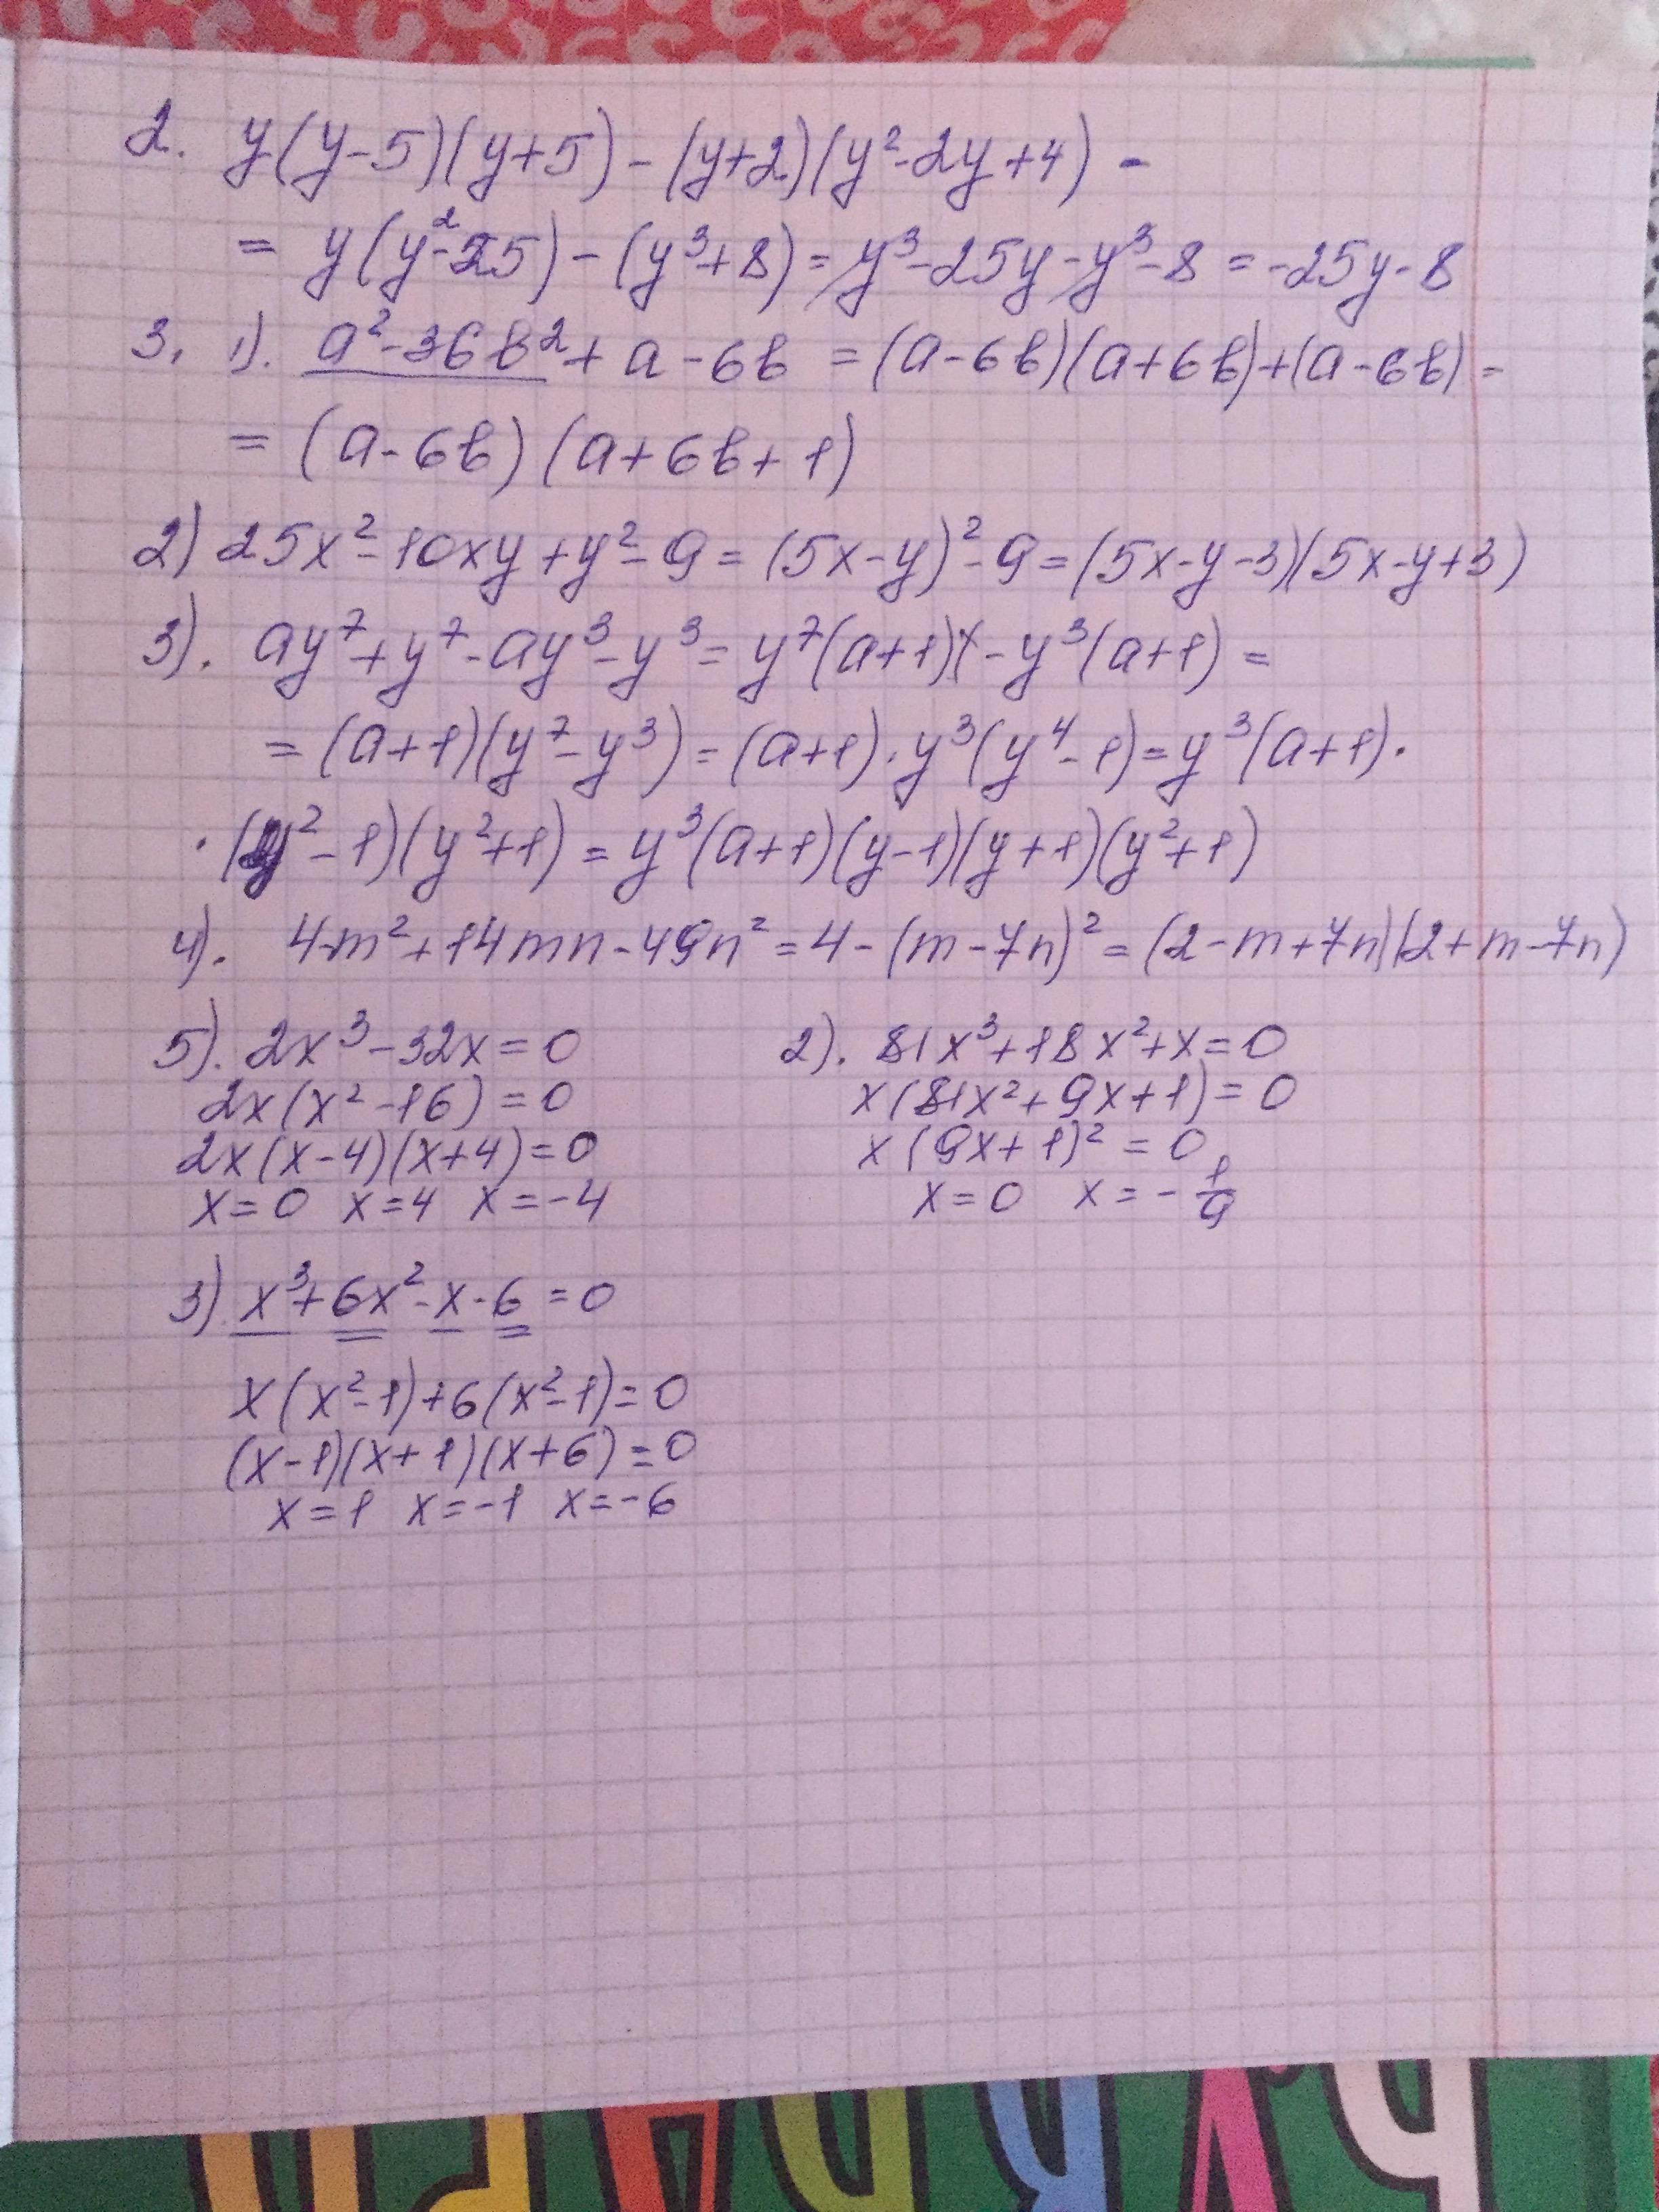 2. y(y-5)(y+5)-(y+2)(y²-2y+4)-
= y(y²-25)-(y³+8)=y³-25y-y³-8=-25y-8
3. 1). a²-36b²+a-6b=(a-6b)(a+6b)+(a-6b)=
=(a-6b)(a+6b+1)
2) 25x²-10xy+y²-9=(5x-y)²-9=(5x-y-3)(5x-y+3)
3). ay⁷+y⁷-ay³-y³=y⁷(a+1)-y³(a+1)=
=(a+1)(y⁷-y³)=(a+1)·y³(y⁴-1)=y³(a+1)·
·(y²-1)(y²+1)=y³(a+1)(y-1)(y+1)(y²+1)
4). 4-m²+14mn-49n²=4-(m-7n)²=(2-m+7n)(2+m-7n)
5). 2x³-32x=0
2x(x²-16)=0
2x(x-4)(x+4)=0
x=0 x=4 x=-4
2). 81x³+18x²+x=0
x(81x²+9x+1)=0
x(9x+1)²=0
x=0 x=-1/9
3) x³+6x²-x-6=0
x(x²-1)+6(x²-1)=0
(x-1)(x+1)(x+6)=0
x=1 x=-1 x=-6